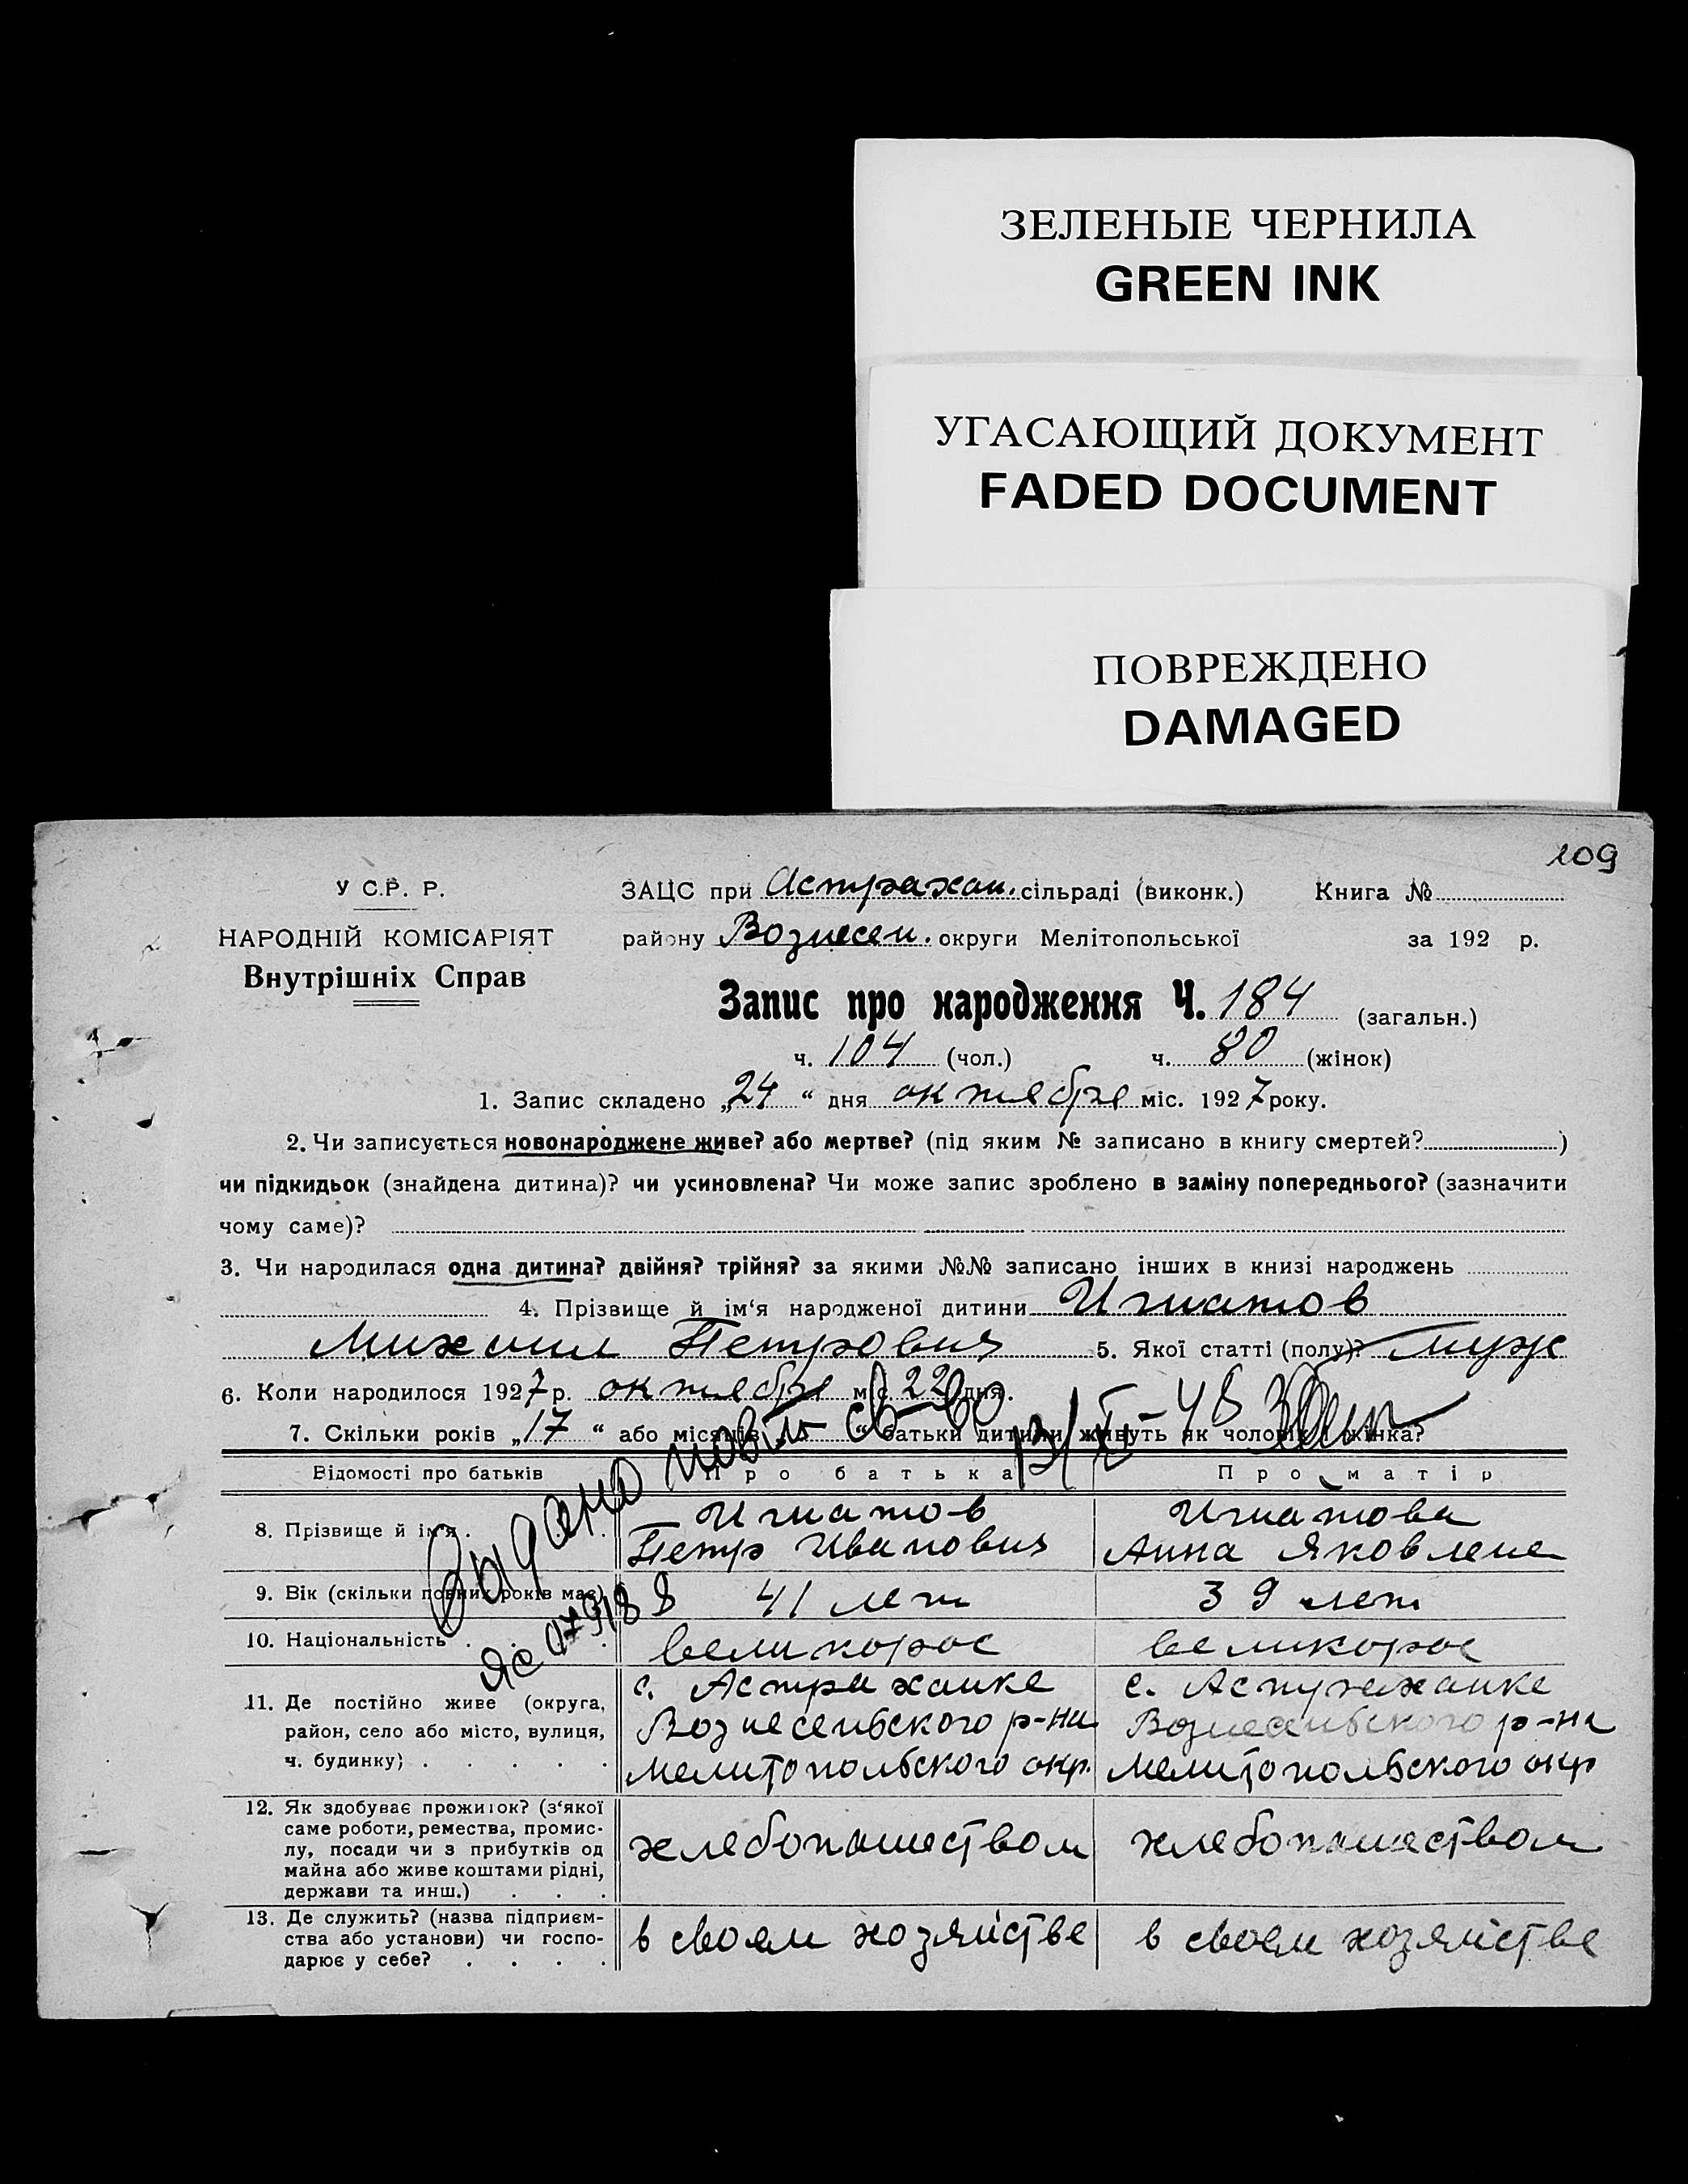 ЗЕЛЕНЫЕ ЧЕРНИЛА
GREEN INK
УГАСАЮЩИЙ ДОКУМЕНТ
FADED DOCUMENT
ПОВРЕЖДЕНО
DAMAGED
109
У С.Р. Р.
НАРОДНІЙ КОМІСАРІЯТ
Внутрішніх Справ
ЗАЦС при Астрахан. сільраді (виконк.) Книга №
району Вознесен. округи Мелітопольської за 192 р.
Запис про народження Ч. 184 (загальн.)
ч. 104 (чол.) ч. 80 (жінок)
1. Запис складено „24 “ дня октября міс. 1927 року.
2. Чи записується новонароджене живе? або мертве? (під яким № записано в книгу смертей? )
чи підкидьок (знайдена дитина)? чи усиновлена? Чи може запис зроблено в заміну попереднього? (зазначити
чому саме)?
3. Чи народилася одна дитина? двійня? трійня? за якими №№ записано інших в книзі народжень
4. Прізвище й ім‘я народженої дитини Игнатов
Михаил Петрович 5. Якої статті (полу)? муж
6. Коли народилося 1927 р. октября міс. 22 дня.
7. Скільки років „17 “ або місяців „ “ батьки дитини живуть як чоловік і жінка?
Выдано повт св-во
Яс 079188
Відомості про батьків Про батька Про матір
8. Прізвище й ім‘я . Игнатов Петр Иванович Игнатова Анна Яковлене
9. Вік (скільки повних років має) 41 лет 39 лет
10. Національність . . . великорос великорос
11. Де постійно живе (округа, район, село або місто, вулиця, ч. будинку) . . . . . с. Астраханке Вознесеньского р-на Мелитопольского окр. с. Астраханке Вознесеньского р-на Мелитопольского окр
12. Як здобуває прожиток? (з‘якої саме роботи, ремества, промислу, посади чи з прибутків од майна або живе коштами рідні, держави та инш.) . . . хлебопашеством хлебопашеством
13. Де служить? (назва підприємства або установи) чи господарює у себе? . . . . в своем хозяйстве в своем хозяйстве